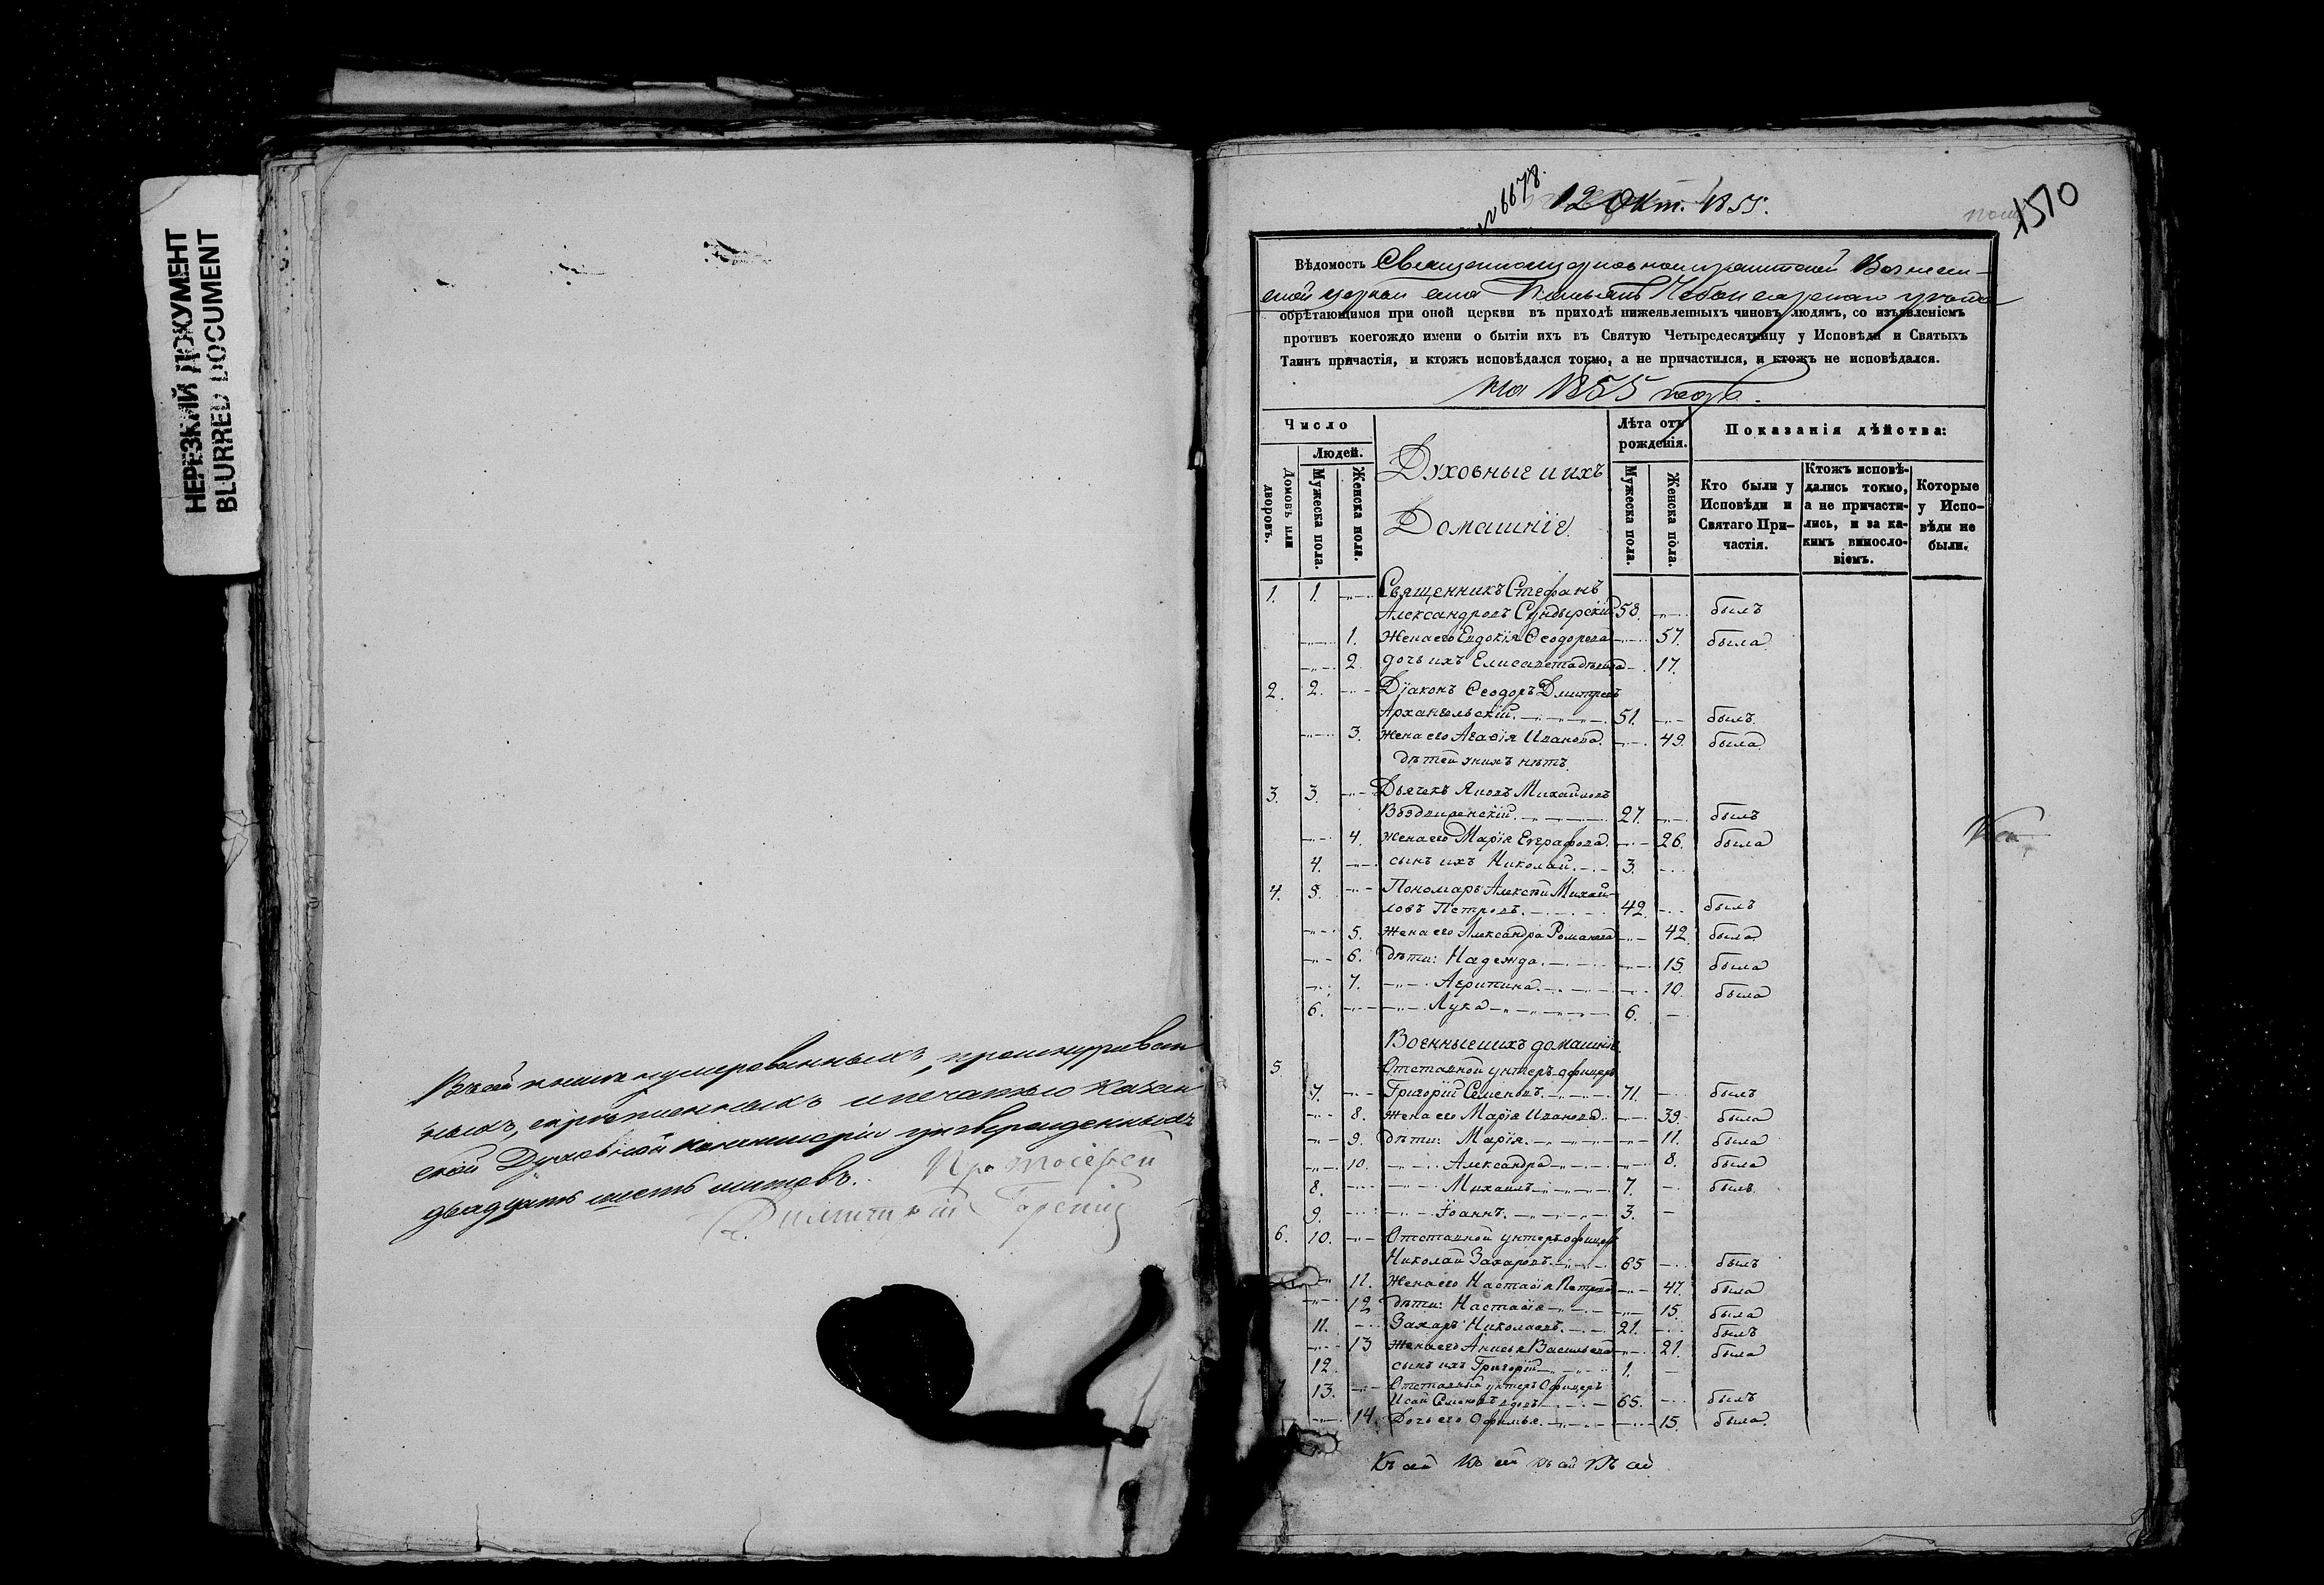 НЕРЕЗКИЙ ДОКУМЕНТ
BLURRED DOCUMENT
Въ сей книгѣ нумерованныхъ, прошнурован
ныхъ, скрѣпленныхъ и печатью Казан
ской Духовной Консисторіи утвержденныхъ
двадцать шесть листовъ. Протоіерей
Димитрій
№ 6678.
12 Окт. 1855.
1510
Вѣдомость Вознесен-
ской церкви села Чебоксарскаго уѣзда
обрѣтающимся при оной церкви въ приходѣ нижеявленныхъ чиновъ людямъ, со изъявленіемъ
противъ коегождо имени о бытіи ихъ въ Святую Четыредесятницу у Исповѣди и Святыхъ
Таинъ причастія, и ктожъ исповѣдался токмо, а не причастился, и ктожъ не исповѣдался.
На 1855 годъ.
Число
Домовъ или дворовъ.
Людей.
Мужеска пола.
Женска пола.
Духовные и ихъ
Домашніе.
Лѣта отъ рожденія.
Мужеска пола.
Женска пола.
Показанія дѣйства:
Кто были у Исповѣди и Святаго При-частія.
Ктожъ исповѣ-дались токмо, а не причасти-лись, и за ка-кимъ винословіемъ.
Которые у Испо-вѣди не были.
1. 1. Священникъ Стефанъ
Александровъ Сундырскій 58. былъ
1. Жена его Евдокія Ѳеодорова 57. была
2. дочь ихъ Елисавета 17.
2. 2. Діаконъ Ѳеодоръ Дмитріевъ
Архангельскій. 51. былъ.
3. Жена его Агаѳія Иванова. 49. была
дѣтей у нихъ нѣтъ.
3. 3. Дьячекъ Яковъ Михайловъ
Воздвиженскій. 27. былъ
4. Жена его Марія Евграфова. 26. была
4. сынъ ихъ Николай. 3.
4. 5. Пономарь Алексѣй Михай-
ловъ Петровъ. 42. былъ
5. Жена его Александра Романова 42. была
6. дѣти: Надежда. 15. была
7. Агрипина. 10. была
6. Лука 6.
Военные и ихъ домашніе.
5. Отставной унтеръ-офицеръ
7. Григорій Семеновъ. 71. былъ
8. Жена его Марія Иванова. 39. была
9. дѣти: Марія. 11. была
10. Александра 8. была
8. Михаилъ 7. былъ
9. Іоаннъ. 3.
6. 10. Отставной унтеръ-офицеръ
Николай Захаровъ. 65 былъ
11. Жена его Настасія Петрова 47. была
12 дѣти: Настасія 15. была
11. Захаръ Николаевъ. 21. былъ
13 Жена его Анисья Васильева 21. была
12. сынъ ихъ Григорій 1.
13. Отставный унтеръ Офицеръ
Исай Семеновъ вдовъ 65. былъ
14. Дочь его Офимья. 15. была.